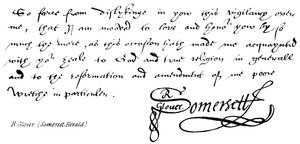 So farre from dislykinge in you this vigilancy over
me, that I am moved to love and honor you by so
much the more, as this occasion hath made me acquaynted
with yor zeale to God and true religion in generall
and to the reformation and amendment of me poore
wretche in particuler.
R
Glover Somersett
R. Glover. (Somerset Herald.)